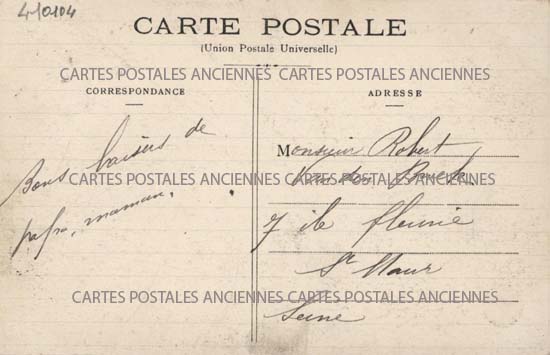 4-10104
CARTE POSTALE
(Union Postale Universelle)
CARTES POSTALES ANCIENNES CARTES POSTALES ANCIENNES
CORRESPONDANCE
Bons baisers de
papa, maman.
ADRESSE
Monsieur Robert
CARTES POSTALES ANCIENNES CARTES POSTALES ANCIENNES
7 ile fleurie
St Maur
CARTES POSTALES ANCIENNES CARTES POSTALES ANCIENNES
Seine